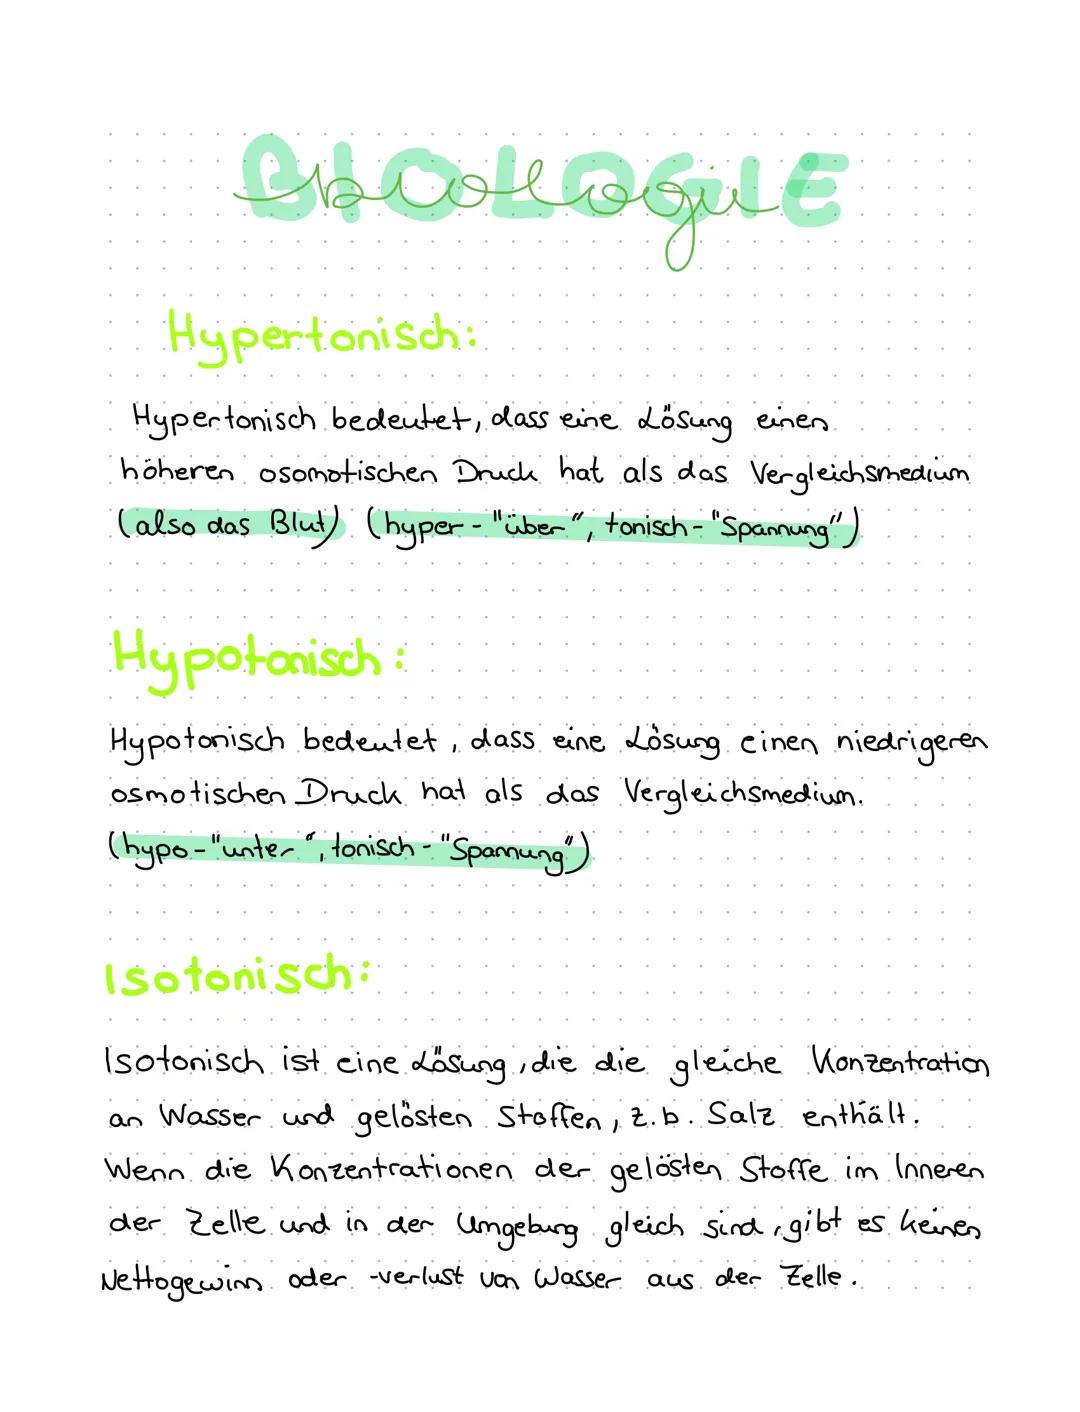 BIOLOGIE
biologie
Hypertonisch:
Hypertonisch bedeutet, dass eine Lösung einen
höheren osomotischen Druck hat als das Vergleichsmedium
(also das Blut) (hyper - "über", tonisch - "Spannung")
Hypotonisch:
Hypotonisch bedeutet, dass eine Lösung einen niedrigeren
osmotischen Druck hat als das Vergleichsmedium.
(hypo - "unter", tonisch - "Spannung")
Isotonisch:
Isotonisch ist eine Lösung, die die gleiche Konzentration
an Wasser und gelösten Stoffen, z.b. Salz enthält.
Wenn die Konzentrationen der gelösten Stoffe im Inneren
der Zelle und in der Umgebung gleich sind, gibt es keinen
Nettogewinn oder -verlust von Wasser aus der Zelle.